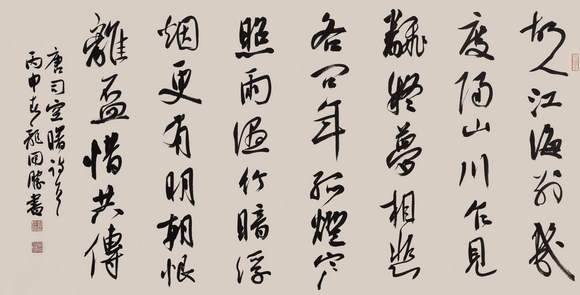 故人江海别幾
度隔山川乍見
翻疑夢相悲
各問年孤燈寒
照雨濕竹暗浮
烟更有明朝恨
離盃惜共傳
唐司空曙詩
丙申春龍開勝書